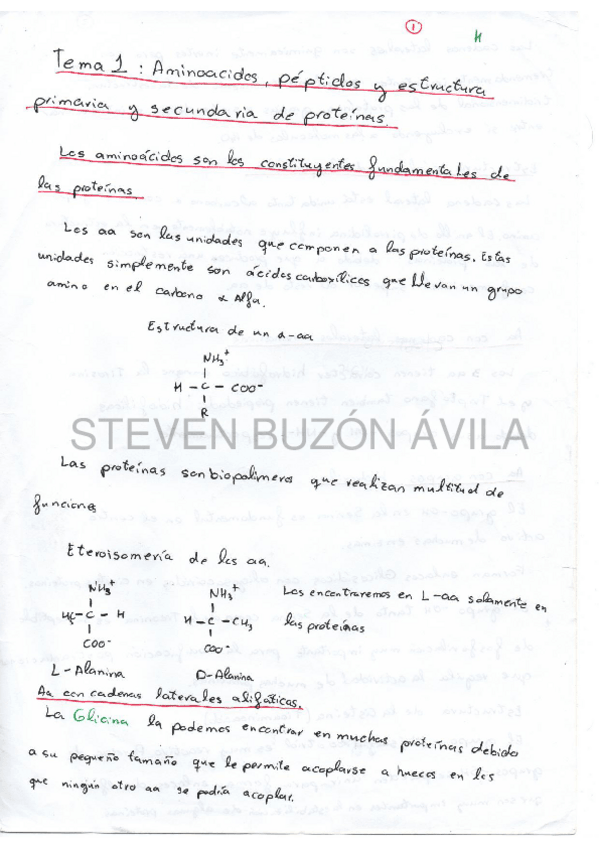 1
Tema 1: Aminoacidos, péptidos y estructura
primaria y secundaria de proteínas.
Los aminoácidos son los constituyentes fundamentales de
las proteínas
Los aa son las unidades que componen a las proteínas. Estas
unidades simplemente son ácidos carboxílicos que llevan un grupo
amino en el carbono α Alfa.
Estructura de un α-aa
NH3+
H - C - COO-
R
STEVEN BUZÓN ÁVILA
Las proteínas son biopolimeros que realizan multitud de
funciones
Eteroisomería de los aa.
NH3+ NH3+ Los encontraremos en L-aa solamente en
C - H H - C - CH3 las proteínas
COO- COO-
L-Alanina D-Alanina
Aa con cadenas laterales alifáticas.
La Glicina la podemos encontrar en muchas proteínas debido
a su pequeño tamaño que le permite acoplarse a huecos en los
que ningún otro aa se podría acoplar.